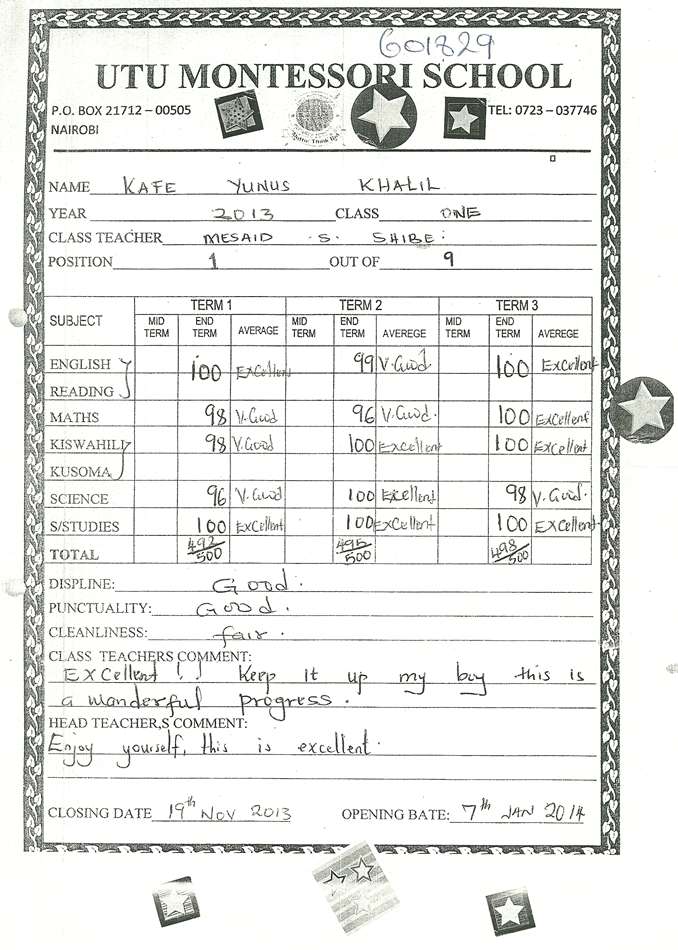 601829
UTU MONTESSORI SCHOOL
P.O. BOX 21712 – 00505 TEL: 0723 – 037746
NAIROBI
NAME KAFE YUNUS KHALIL
YEAR 2013 CLASS ONE
CLASS TEACHER MESAID .S. SHIBE.
POSITION 1 OUT OF 9
SUBJECT TERM 1 TERM 2 TERM 3
MID TERM END TERM AVERAGE MID TERM END TERM AVEREGE MID TERM END TERM AVEREGE
ENGLISH 100 Excellent 99 V.Good 100 Excellent
READING
MATHS 98 V.Good 96 V.Good. 100 Excellent
KISWAHILI 98 V.Good 100 Excellent 100 Excellent
KUSOMA
SCIENCE 96 V.Good 100 Excellent 98 V.Good.
S/STUDIES 100 Excellent 100 Excellent 100 Excellent
TOTAL 492/500 495/500 498/500
DISPLINE: Good.
PUNCTUALITY: Good.
CLEANLINESS: fair.
CLASS TEACHERS COMMENT:
Excellent!! Keep it up my boy this is
a wonderful progress.
HEAD TEACHER,S COMMENT:
Enjoy yourself, this is excellent.
CLOSING DATE 19th Nov 2013 OPENING BATE: 7th JAN 2014